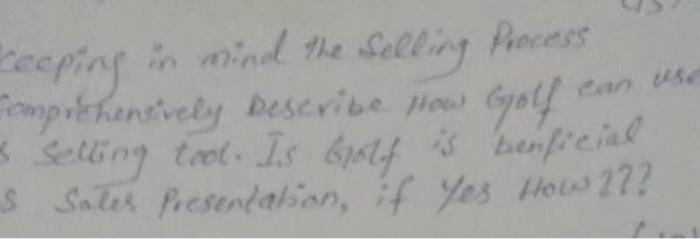 Keeping in mind the Selling Process
Comprehensively Describe How Golf can use
s Selling tool. Is Golf is benficial
s Sales Presentation, if Yes How???